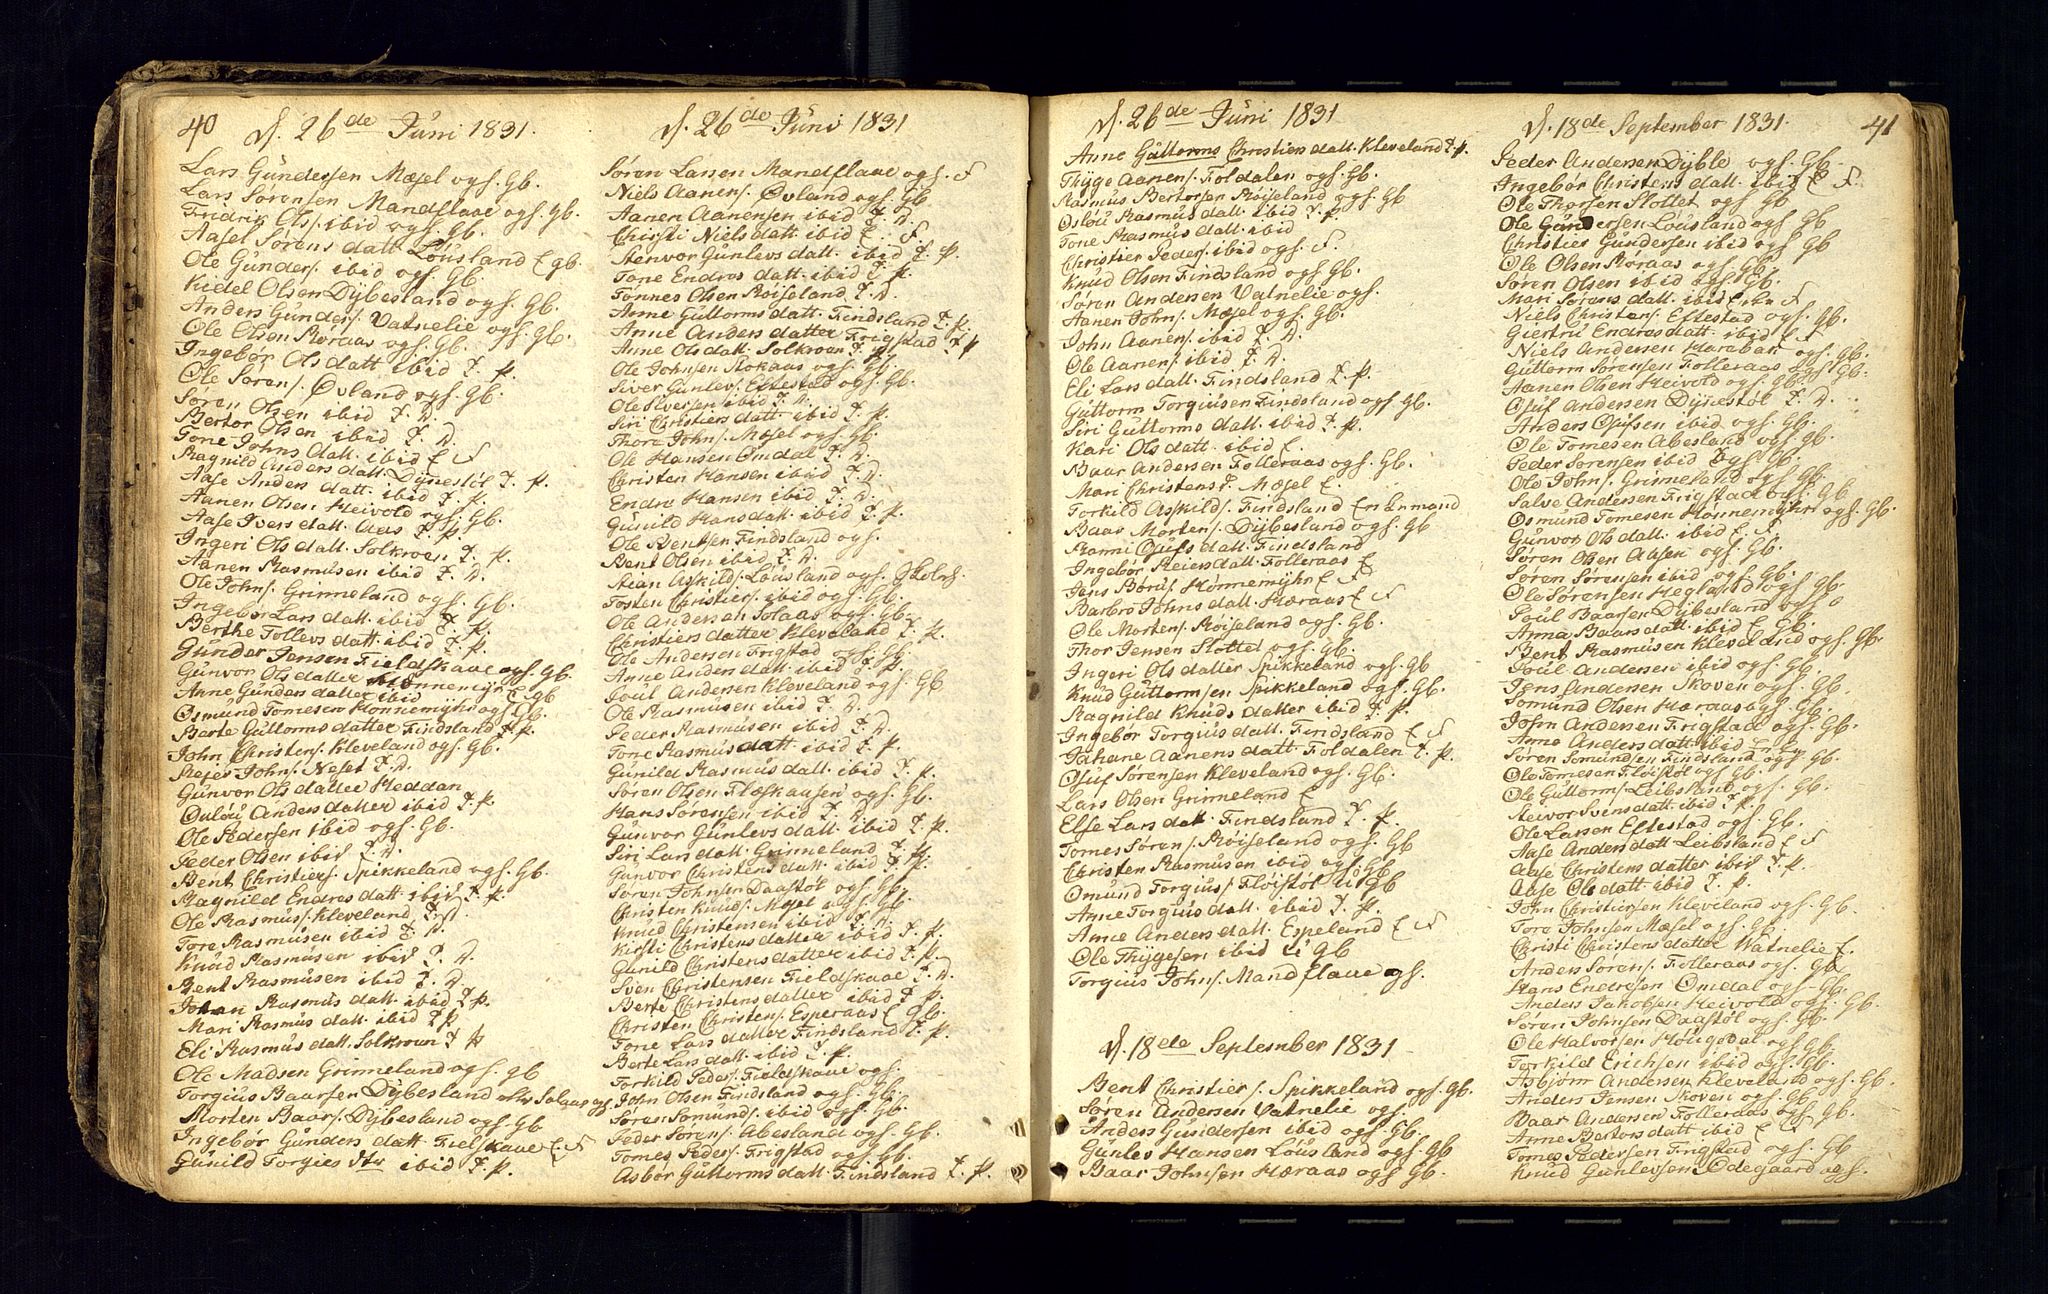 40
d. 26de Juni 1831.
Lars Gundersen Mæsel ogh. Gb.
Lars Sørensen Mandflaae ogh. Gb.
Fredrik Ols. ibid ogh. Gb.
Aasel Sørens datt Løusland E gb.
Ole Gunders. ibid ogh. Gb.
Kidel Olsen Dybesland ogh. Gb.
Anders Gunders. Vatnelie ogh. Gb.
Ole Olsen Røraas ogh. Gb.
Ingebor Ols datt ibid T. p.
Ole Søren/. Øvland ogh. Gb.
Søren Olsen ibid T. D.
Bertor Olsen ibid T. D.
Tone Johns Datt. ibid E F
Ragnild Anders datt. Dynestöl T. p.
Aase Anders datt. ibid T. p.
Aanen Olsen Heivold ogh. Gb.
Aase Ivers datt. Aas T. p.
Ingeri Ols datt. Solkroen T. p.
Aanen Rasmusen ibid T. D.
Ole John/. Grimeland ogh. Gb.
Ingebor Lars datt. ibid T. p.
Berthe Tollevs datt. ibid T. p.
Gunder Jensen Fieldskaae ogh. Gb.
Gunvor Ols datter Honnemyr E gb
Anne Gunders datter ibid
Osmund Tomesen Honnemyhr ogh. Gb.
Berte Guttorms datter Findsland T. p.
John Christen/. Kleveland ogh. Gb.
Reier John/. Neset T. D.
Gunvor Ols datter Heddan
Oulou Anders datter ibid T. p.
Ole Pedersen ibid ogh. Gb.
Peder Olsen ibid T. D.
Bent Christier/. Spikkeland ogh. Gb.
Ragnild Endres datt. ibid T. p.
Ole Rasmus/. Kleveland T. D.
Tore Rasmusen ibid T. D.
Knud Rasmusen ibid T. D.
Bent Rasmusen ibid T. D.
Rasmus datt. ibid T. p.
Mari Rasmus datt. ibid T. p.
Eli Rasmus datt. Solkroun T p
Ole Madsen Grimeland ogh. Gb
Torgius Baarsen Dybesland
Morten Baar/. Dybesland ogh Gb
Ingebor Gunders datt Fieldskaae E F
Gunild Torgies dtr ibid T. p.
d. 26de Juni 1831
Søren Larsen Mandflaae ogh. F
Niels Aanen/. Øvland ogh. Gb
Aanen Aanensen ibid T. D.
Christi Niels datt. ibid E. F
Stenvor Gunlevs datt. ibid T. p.
Tone Endres datt. ibid T. p.
Tönnes Olsen Röiseland T. D.
Anne Guttorms datt. Findsland T. p.
Anne Anders datter Frigstad T. p
Anne Ols datt. Solkroen T. p.
Ole Johnsen Stokaas ogh. Gb.
Siver Gunlev/. Eftestad ogh. Gb.
Ole Siversen ibid T. D.
Siri Christiers datt. ibid T. p.
Thore John/. Mæsel ogh. Gb.
Ole Hansen Omdal T. D.
Christen Hansen ibid T. D.
Endre Hansen ibid T. D.
Gunild Hans datt. ibid T. p.
Ole Bentsen Findsland ogh.
Bent Olsen ibid T. D.
Stian Askild/. Løusland ogh.
Tosten Christier/. ibid ogh. Gb.
Ole Andersen Solaas ogh. Gb.
Christiers datter Kleveland T. p.
Ole Andersen Frigstad ogh. Gb.
Anne Anders datt. ibid T. p.
Poul Andersen Kleveland ogh. Gb
Ole Rasmusen ibid T. D.
Peder Rasmusen ibid T. D.
Tone Rasmus datt. ibid T. p.
Gunild Rasmus datt. ibid T. p.
Søren Olsen Flæskaasen ogh. Gb.
Hans Sørensen ibid T. D.
Gunvor Gunlevs datt. ibid T. p.
Siri Lars datt. Grimeland T. p.
Gunvor Christens datt. ibid T p
Søren Johnsen Daastöl ogh. Gb.
Christen Knud/. Mæsel ogh. Gb.
Knud Christensen ibid T. D.
Kirsti Christens datter ibid T. p.
Gunild Christens datter ibid T. p.
Sven Christensen Fieldskaae T. D.
Berte Christens datter ibid T. p.
Christen Christen/. Esperaas E Gb.
Tone Lars datter Findsland T. p.
Berte Lars datt. ibid T. p.
Torkild Peder/. Fieldskaae ogh.
John Olsen Findsland ogh. Gb.
Søren Tomund/. ibid ogh. Gb.
Peder Søren/. Abesland ogh. Gb.
Tomes Peder/. Frigstad ogh. Gb.
Asbor Guttorms datt. Findsland T. p.
d. 26de Juni 1831
Anne Guttorms Christiers datt. Kleveland T. p.
Thyge Aanen/. Foldalen ogh. Gb.
Rasmus Bertorsen Röiseland ogh. Gb
Oslou Rasmus datt. ibid T. p.
Tone Rasmus datt. ibid
Christier Peder/. ibid ogh. F.
Knud Olsen Findsland ogh. Gb.
Søren Andersen Vatnelie ogh.
Aanen John/. Mæsel ogh. Gb.
John Aanen/. ibid T. D.
Ole Aanen/. ibid T. D.
Eli Lars datt. Findsland T. p.
Guttorm Torgiusen Findsland ogh. Gb.
Siri Guttorms datt. ibid T. p.
Kari Ols datt. ibid E.
Baar Andersen Folleraas ogh. Gb.
Mari Christens d. Mæsel E.
Torkild Askild/. Findsland Enkemand
Baar Morten/. Dybesland ogh. Gb
Ranni Osufs datt. Findsland
Ingebor Reiers datt. Folleraas E
Jens Börus/. Honnemyhr E F
Barbro Johns datt. Hæraas E F
Ole Morten/. Röiseland ogh. Gb
Thor Jensen Slottet ogh. Gb.
Ingeri Ols datter Spikkeland ogh. Gb
Knud Guttormsen Spikkeland ogh. Gb.
Ragnild Knuds datter ibid T. p.
Ingebor Torgius datt. Findsland E F
Johane Aanens datt. Foldalen T. p.
Osuf Sørensen Kleveland ogh. Gb.
Lars Olsen Grimeland E
Else Lars datt. Findsland T. p.
Tomes Søren/. Röiseland ogh. Gb
Christen Rasmusen ibid ogh. Gb
Omund Torgius/. Flöistöl U. Gb
Anne Torgius datt. ibid T. p.
Anne Anders datt. Espeland E F
Ole Thygesen ibid U Gb
Torgius John/. Mandflaae ogh.
d. 18de September 1831.
Bent Christier/. Spikkeland ogh. Gb.
Søren Andersen Vatnelie ogh.
Anders Gundersen ibid ogh. Gb.
Gunlev Hansen Løusland ogh. Gb
Baar Johnsen Hæraas ogh Gb.
d. 18de September 1831.
41
Peder Andersen Dyble ogh. Gb.
Ingebor Christens datt. ibid E F.
Ole Thorsen Slottet ogh Gb
Ole Gundersen Løusland ogh Gb
Christier Gundersen ibid ogh Gb
Ole Olsen Røraas ogh. Gb
Søren Olsen ibid ogh Gb.
Mari Sørens datt. ibid Enke F
Niels Christen/. Eftestad ogh. Gb.
Giertru Endres datt. ibid E F
Niels Andersen Harebak ogh. Gb.
Guttorm Sørensen Folleraas ogh Gb.
Aanen Olsen Heivold ogh. Gb.
Osuf Andersen Dynestöl T. D.
Anders Osufsen ibid ogh. Gb.
Ole Tomesen Abesland ogh. Gb.
Peder Sørensen ibid ogh. Gb.
Ole John/. Grimeland ogh Gb
Salve Andersen Frigstad ogh. Gb
Osmund Tomesen Honnemyhr ogh. Gb.
Gunvor Ols datt. ibid E F
Søren Olsen Aasen ogh. Gb.
Søren Sørensen ibid ogh. Gb
Ole Sørensen Hegland ogh Gb
Poul Baarsen Dybesland ogh
Anna Baars datt. ibid E Gb.
Bent Rasmusen Kleveland ogh. Gb.
Poul Andersen ibid ogh. Gb
Jens Andersen Skoven ogh. Gb.
Tomund Olsen Hæraas ogh. Gb.
John Andersen Frigstad ogh. Gb.
Anne Anders datt. ibid
Søren Tomundsen Findsland ogh. Gb
Ole Tomesen Flöistöl ogh Gb.
Ole Guttorm/. Leibsland ogh. Gb
Steivor Svens datt. ibid T. p.
Ole Larsen Eftestad ogh. Gb.
Aase Anders datt Leibsland E F
Aase Christens datter ibid T. p.
Aase Ols datt. ibid T. p.
John Christiersen Kleveland ogh. Gb.
Tore Johnsen Mæsel ogh. Gb.
Christi Christens datter Watnelie E.
Anders Søren/. Folleraas ogh. Gb
Hans Endresen Omdal ogh. Gb.
Anders Jakobsen Heivold ogh. Gb.
Søren Johnsen Daastöl ogh. Gb.
Ole Halvorsen Hougsdal ogh. Gb.
Torkild Erichsen ibid ogh. Gb.
Asbjörn Andersen Kleveland ogh. Gb.
Anders Jensen Skoven ogh. Gb
Baar Andersen Folleraas ogh. Gb.
Anne Bertors datt ibid E F
Tomes Pedersen Frigstad ogh. Gb
Knud Gunlevsen Ødegaard ogh.